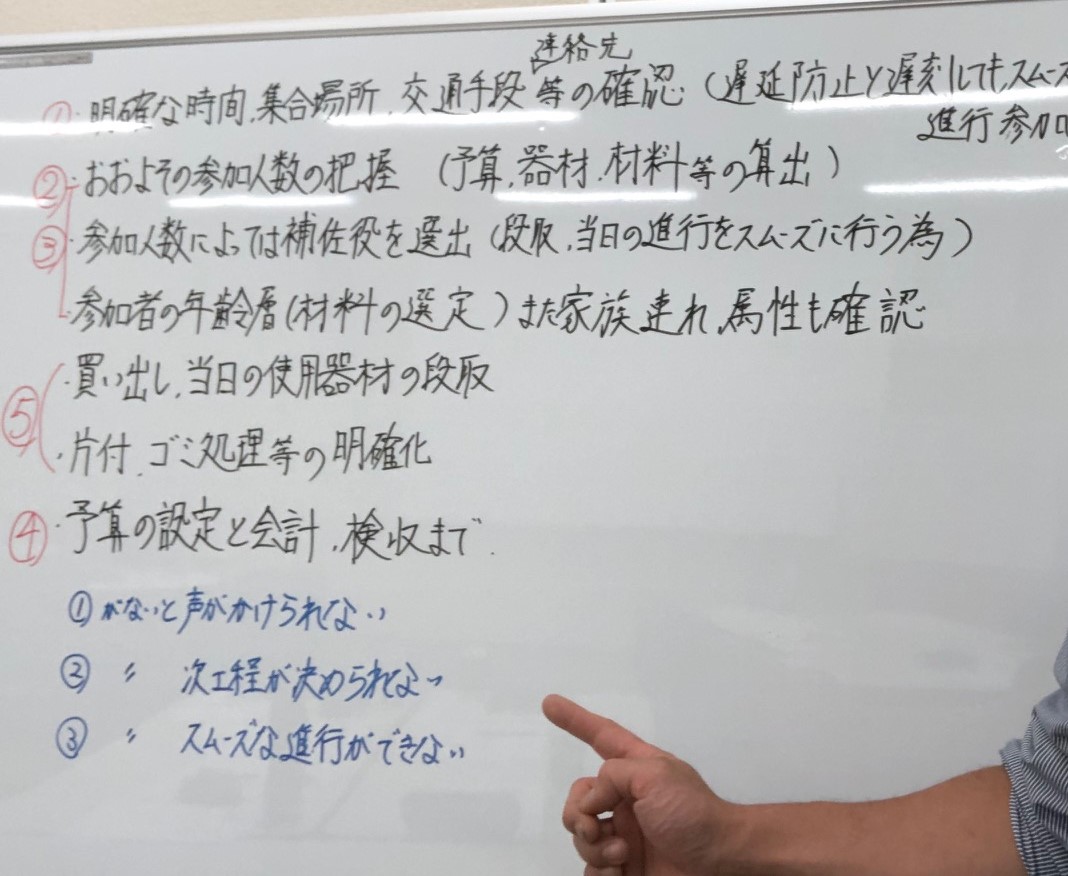 連絡先
①・明確な時間、集合場所、交通手段等の確認(遅延防止と遅刻してもスムーズ
進行参加
②・おおよその参加人数の把握 (予算、器材、材料等の算出)
③・参加人数によっては補佐役を選出(段取、当日の進行をスムーズに行う為)
・参加者の年齢層(材料の選定)また家族連れ、属性も確認
⑤・買い出し、当日の使用器材の段取
・片付、ゴミ処理等の明確化
④・予算の設定と会計、検収まで
①がないと声がかけられない
② 〃 次工程が決められない
③ 〃 スムーズな進行ができない